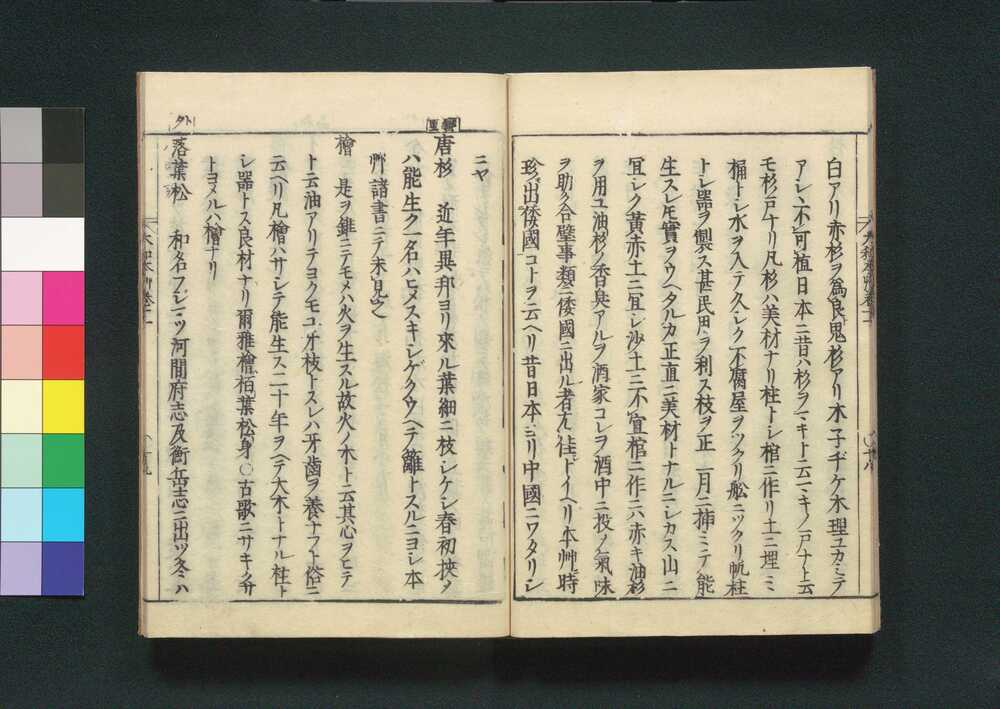 白アリ赤杉ヲ爲良鬼杉アリ木子ヂケ木理ユカミテ
アレシ不可植日本ニ昔ハ杉ヲマキト云マキノ戸ナト云
モ杉戸ナリ凡杉ハ美材ナリ柱トシ棺ニ作リ土ニ埋ミ
桶トシ水ヲ入テ久シク不腐屋ヲツクリ舩ニツクリ帆柱
トシ器ヲ製ス甚民用ヲ利ス枝ヲ正二月ニ挿ミテ能
生スレ𪜈實ヲウヘタルカ正直ニ美材トナルニシカス山ニ
宜シク黄赤土ニ宜シ沙土ニ不宜棺ニ作ニハ赤キ油杉
ヲ用ユ油杉ノ香臭アルヲ酒家コレヲ酒中ニ投ノ氣味
ヲ助ク合璧事類ニ倭國ニ出ル者尤佳トイヘリ本艸ニ時
珍出倭國コトヲ云ヘリ昔日本ヨリ中國ニワタリシ
ニヤ
唐杉 近年異邦ヨリ來ル葉細ニ枝シケシ春初挾メ
ハ能生ク一名ハヒメスキシゲクウヘテ籬トスルニヨシ本
艸諸書ニテ未見之
檜 是ヲ錐ニテモメハ火ヲ生スル故火ノ木ト云其心ヲヒテ
ト云油アリテヨクモユ牙枝トスレハ牙齒ヲ養ナフト俗ニ
云ヘリ凡檜ハサシテ能生ス二十年ヲヘテ大木トナル柱ト
シ器トス良材ナリ爾雅檜栢葉松身○古歌ニサキクサ
トヨメルハ檜ナリ
外 落葉松 和名フジマツ河間府志及衡岳志ニ出ツ冬ハ
大和本艸卷十一